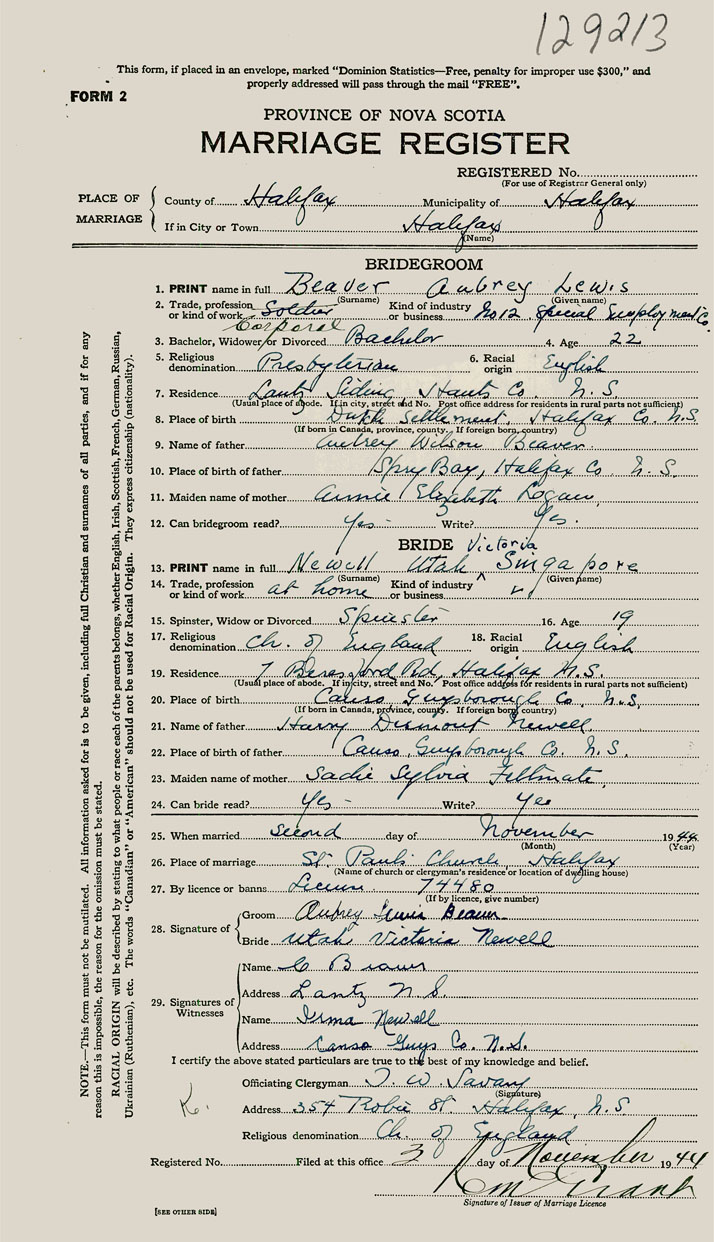 129213
This form, if placed in an envelope, marked "Dominion Statistics—Free, penalty for improper use $300," and
properly addressed will pass through the mail "FREE".
FORM 2
PROVINCE OF NOVA SCOTIA
MARRIAGE REGISTER
REGISTERED No.
(For use of Registrar General only)
PLACE OF MARRIAGE
County of Halifax Municipality of Halifax
If in City or Town Halifax
(Name)
BRIDEGROOM
1. PRINT name in full Beaver Aubrey Lewis
(Surname) (Given name)
2. Trade, profession or kind of work Soldier Corporal Kind of industry or business No 12 Special Employment Co.
3. Bachelor, Widower or Divorced Bachelor 4. Age 22
5. Religious denomination Presbyterian 6. Racial origin English
7. Residence Lantz Siding Hants Co. N.S.
(Usual place of abode. If in city, street and No. Post office address for residents in rural parts not sufficient)
8. Place of birth Dutch Settlement. Halifax Co. N.S.
(If born in Canada, province, county. If foreign born, country)
9. Name of father Aubrey Wilson Beaver.
10. Place of birth of father Spry Bay, Halifax Co N.S.
11. Maiden name of mother Annie Elizabeth Logan,
12. Can bridegroom read? Yes- Write? Yes.
BRIDE
13. PRINT name in full Newell Utah Victoria Singapore
(Surname) (Given name)
14. Trade, profession or kind of work at home Kind of industry or business "
15. Spinster, Widow or Divorced Spinster 16. Age 19
17. Religious denomination Ch. of England 18. Racial origin English
19. Residence 7 Beresford Rd, Halifax N.S.
(Usual place of abode. If in city, street and No. Post office address for residents in rural parts not sufficient)
20. Place of birth Canso Guysborough Co. N.S,
(If born in Canada, province, county. If foreign born, country)
21. Name of father Harry Newell
22. Place of birth of father Canso, Guysborough Co. N.S.
23. Maiden name of mother Sadie Sylvia
24. Can bride read? Yes- Write? Yes
25. When married second day of November 1944
(Month) (Year)
26. Place of marriage St. Paul's Church, Halifax
(Name of church or clergyman's residence or location of dwelling house)
27. By licence or banns Licence 74480
(If by licence, give number)
28. Signature of
Groom Aubrey Lewis Beaver
Bride Utah Victoria Newell
29. Signatures of Witnesses
Name C Beaver
Address Lantz N.S.
Name Irma Newell
Address Canso Guys Co. N.S.
I certify the above stated particulars are true to the best of my knowledge and belief.
Officiating Clergyman T. W. Savary
(Signature)
Address 354 Robie St. Halifax, N.S
Religious denomination Ch. of England
Registered No. Filed at this office 3 day of November 1944
Signature of Issuer of Marriage Licence
[SEE OTHER SIDE]
NOTE.—This form must not be mutilated. All information asked for is to be given, including full Christian and surnames of all parties, and if for any
reason this is impossible, the reason for the omission must be stated.
RACIAL ORIGIN will be described by stating to what people or race each of the parents belongs, whether English, Irish, Scottish, French, German, Russian,
Ukrainian (Ruthenian), etc. The words "Canadian" or "American" should not be used for Racial Origin. They express citizenship (nationality).
K.